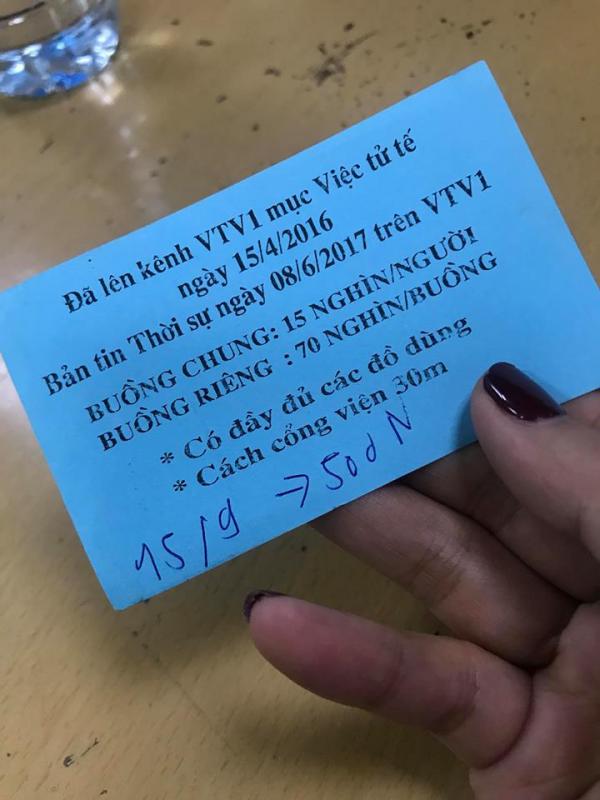 Đã lên kênh VTV1 mục Việc tử tế
ngày 15/4/2016
Bản tin Thời sự ngày 08/6/2017 trên VTV1
BUỒNG CHUNG: 15 NGHÌN/NGƯỜI
BUỒNG RIÊNG : 70 NGHÌN/BUỒNG
* Có đầy đủ các đồ dùng
* Cách cổng viện 30m
15/9 → 50d N